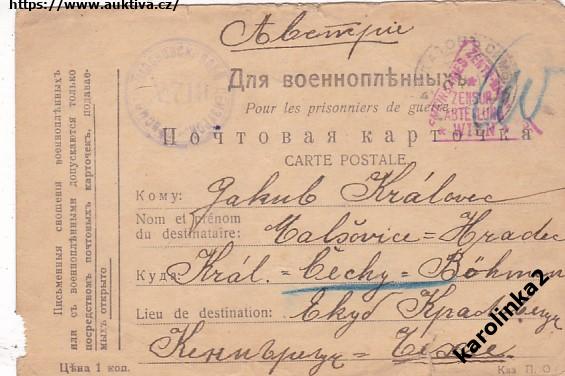 https://www.auktiva.cz/
Австрiе
Для военноплѣнныхъ
Pour les prisonniers de guerre
ZENSUR
ABTEILUNG
WIEN
Почтовая карточка
CARTE POSTALE
Письменныя сношенiя военноплѣнныхъ
или съ военноплѣнными допускаются только
посредствомъ почтовыхъ карточекъ, подавае-
мыхъ открыто
Кому: Jakub Královec
Nom et prénom
du destinataire: Malšovice = Hradec
Куда: Král. = Čechy = Böhmen
Lieu de destination: Екуб Краловец
Чехіе
Цѣна 1 коп.
Каз. П. О.
karolinka2